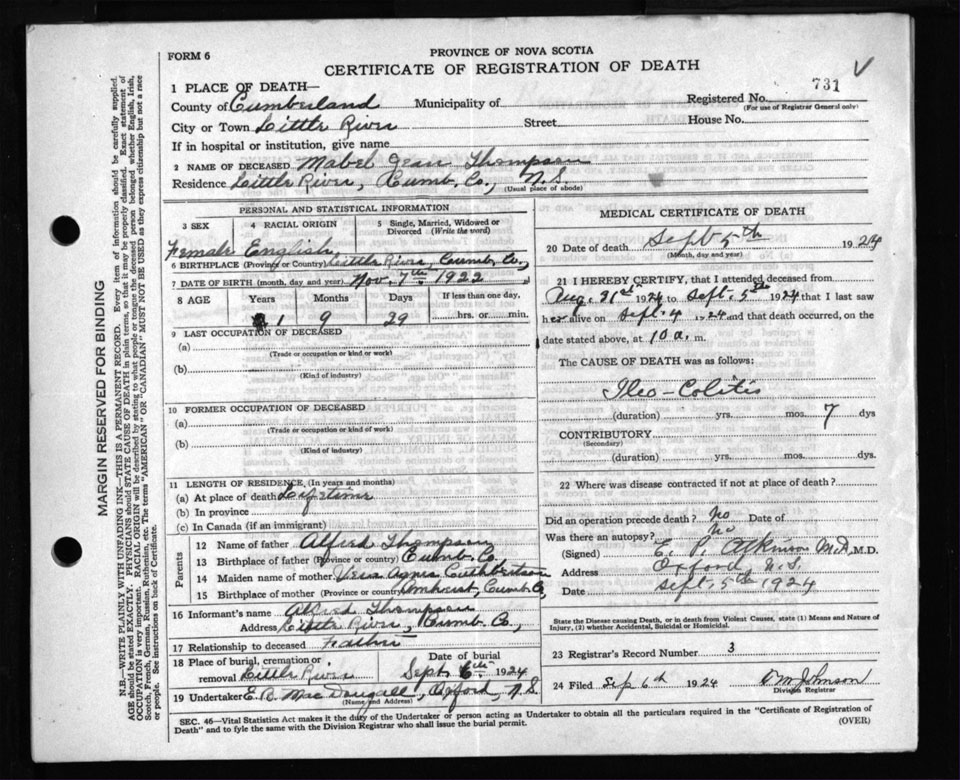 PROVINCE OF NOVA SCOTIA
FORM 6
CERTIFICATE OF REGISTRATION OF DEATH
731 √
1 PLACE OF DEATH—
County of Cumberland Municipality of Registered No.
(For use of Registrar General only)
City or Town Little River Street House No.
If in hospital or institution, give name
2 NAME OF DECEASED Mabel Jean Thompson
Residence Little River, Cumb. Co., N.S.
(Usual place of abode)
PERSONAL AND STATISTICAL INFORMATION
3 SEX 4 RACIAL ORIGIN 5 Single, Married, Widowed or Divorced (Write the word)
Female English
6 BIRTHPLACE (Province or Country) Little River, Cumb. Co.,
7 DATE OF BIRTH (month, day and year) Nov. 7th 1922
8 AGE Years Months Days If less than one day,
1 9 29 hrs. or min.
9 LAST OCCUPATION OF DECEASED
(a)
(Trade or occupation or kind or work)
(b)
(Kind of industry)
10 FORMER OCCUPATION OF DECEASED
(a)
(Trade or occupation or kind or work)
(b)
(Kind of industry)
11 LENGTH OF RESIDENCE, (In years and months)
(a) At place of death Lifetime
(b) In province
(c) In Canada (if an immigrant)
Parents
12 Name of father Alfred Thompson
13 Birthplace of father (Province or country) Cumb. Co.
14 Maiden name of mother Vera Agnes Cuthbertson
15 Birthplace of mother (Province or country) Amherst, Cumb. Co.
16 Informant's name Alfred Thompson
Address Little River, Cumb. Co.,
17 Relationship to deceased Father
18 Place of burial, cremation or removal Little River Date of burial Sept. 6th 1924
19 Undertaker E. B. MacDougall, Oxford, N.S.
(Name and Address)
MEDICAL CERTIFICATE OF DEATH
20 Date of death Sept 5th 1924
(Month, day and year)
21 I HEREBY CERTIFY, that I attended deceased from
Aug. 31st 1924 to Sept. 5th 1924 that I last saw
her alive on Sept. 4 1924 and that death occurred, on
date stated above, at 10 a. m.
The CAUSE OF DEATH was as follows:
Ileo-Colitis
(duration) yrs. mos. 7 dys
CONTRIBUTORY
(Secondary)
(duration) yrs. mos. dys.
22 Where was disease contracted if not at place of death?
Did an operation precede death? No Date of
Was there an autopsy? No
(Signed) E. P. Atkinson M.D., M.D.
Address Oxford N.S.
Date Sept. 5th 1924
State the Disease causing Death, or in death from Violent Causes, state (1) Means and Nature of
Injury, (2) whether Accidental, Suicidal or Homicidal.
23 Registrar's Record Number 3
24 Filed Sep 6th 1924 Johnson
Division Registrar
SEC. 46—Vital Statistics Act makes it the duty of the Undertaker or person acting as Undertaker to obtain all the particulars required in the "Certificate of Registration of
Death" and to fyle the same with the Division Registrar who shall issue the burial permit. (OVER)
MARGIN RESERVED FOR BINDING
N.B.—WRITE PLAINLY WITH UNFADING INK—THIS IS A PERMANENT RECORD. Every item of information should be carefully supplied.
AGE should be stated EXACTLY. PHYSICIANS should STATE CAUSE OF DEATH in plain terms, so that it may be properly classified. Exact statement of
OCCUPATION is very important. RACIAL ORIGIN will be described by stating to what people or tongue the deceased person belonged whether English, Irish,
Scotch, French, German, Russian, Ruthenian, etc. The terms "AMERICAN" OR "CANADIAN" MUST NOT BE USED as they express citizenship but not a race
or people. See instructions on back of Certificate.